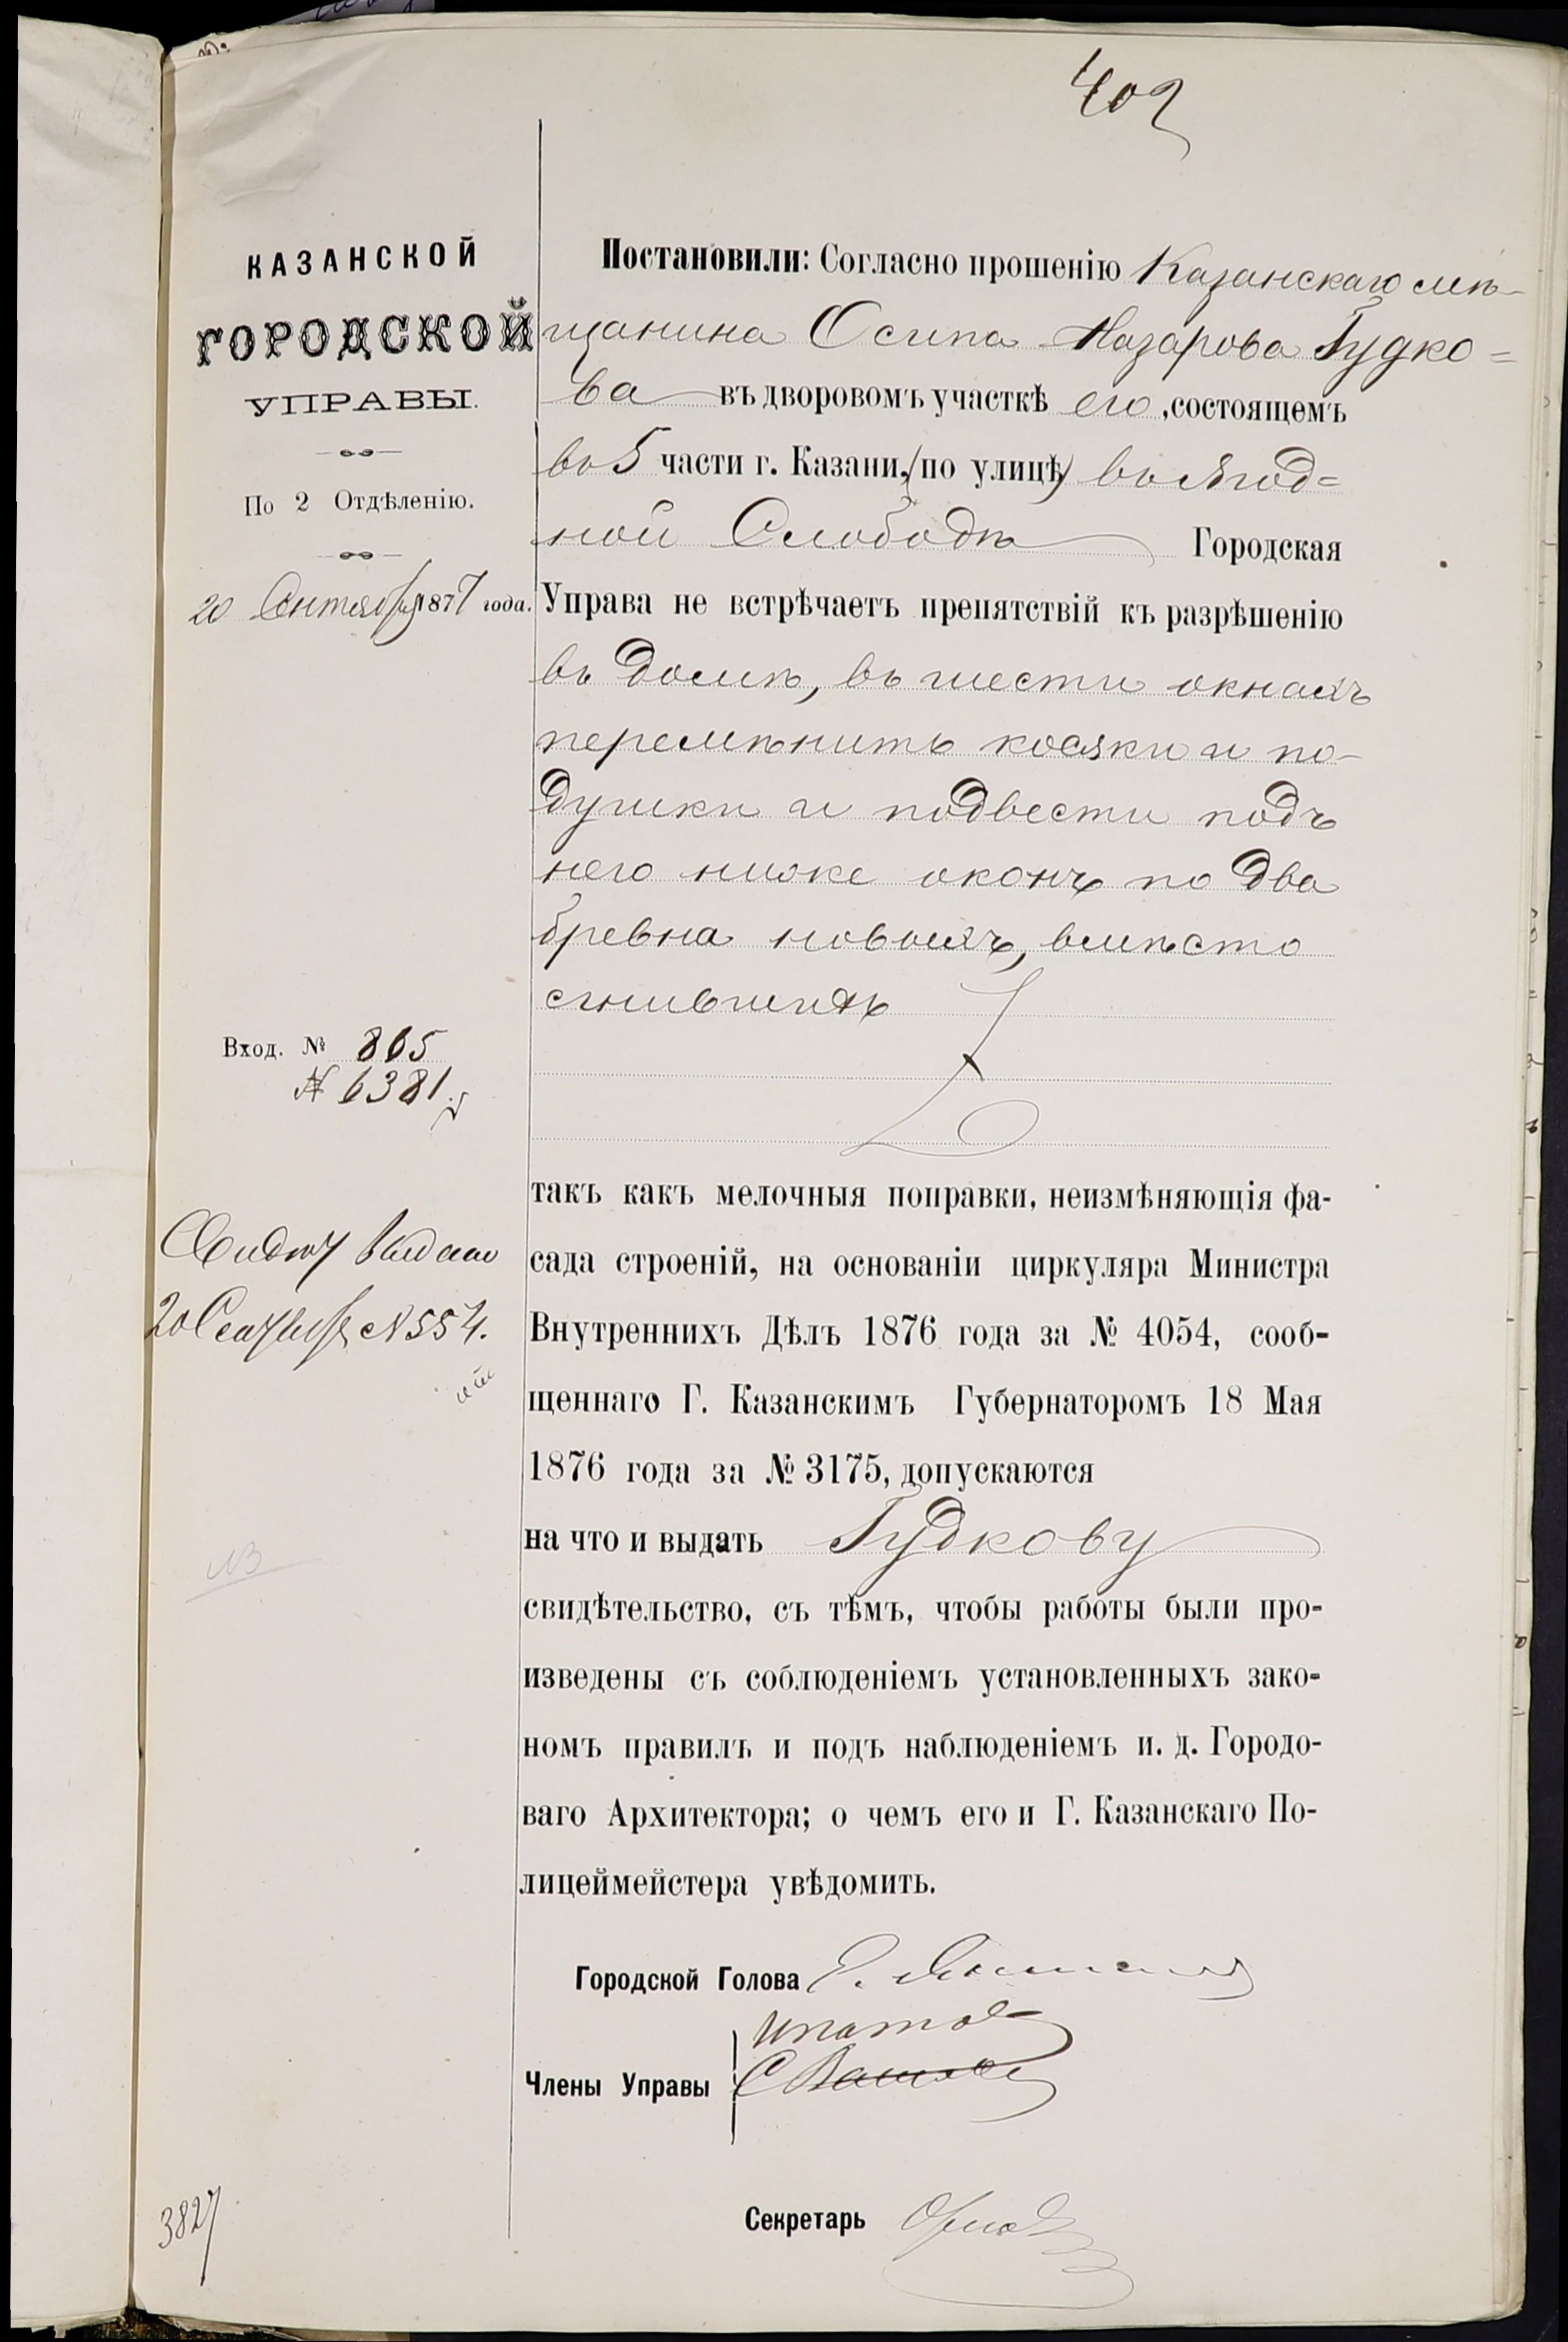 402
КАЗАНСКОЙ
ГОРОДСКОЙ
УПРАВЫ.
По 2 Отдѣленію.
20 Сентября 1877 года.
Вход. № 865
№ 6381
20 Сентября № 554.
3827
Постановили: Согласно прошенію Казанскаго мѣ-
щанина Осипа Назарова Гудко=
ва въ дворовомъ участкѣ его, состоящемъ
въ 5 части г. Казани, (по улицѣ) въ Ягод=
ной Слободѣ Городская
Управа не встрѣчаетъ препятствій къ разрѣшенію
въ домѣ, въ шести окнахъ
перемѣнить косяки и по-
душки и подвести подъ
него ниже оконъ по два
бревна новыхъ, вмѣсто
сгнившихъ
такъ какъ мелочныя поправки, неизмѣняющія фа-
сада строеній, на основаніи циркуляра Министра
Внутреннихъ Дѣлъ 1876 года за № 4054, сооб-
щеннаго Г. Казанскимъ Губернаторомъ 18 Мая
1876 года за № 3175, допускаются
на что и выдать Гудкову
свидѣтельство, съ тѣмъ, чтобы работы были про-
изведены съ соблюденіемъ установленныхъ зако-
номъ правилъ и подъ наблюденіемъ и. д. Городо-
ваго Архитектора; о чемъ его и Г. Казанскаго По-
лицеймейстера увѣдомить.
Городской Голова
Ипатов
Члены Управы
Секретарь